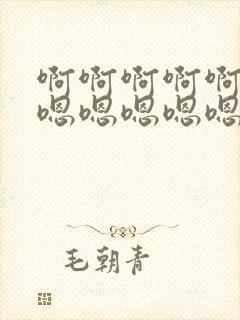 啊啊啊啊啊
嗯嗯嗯嗯嗯
毛朝青